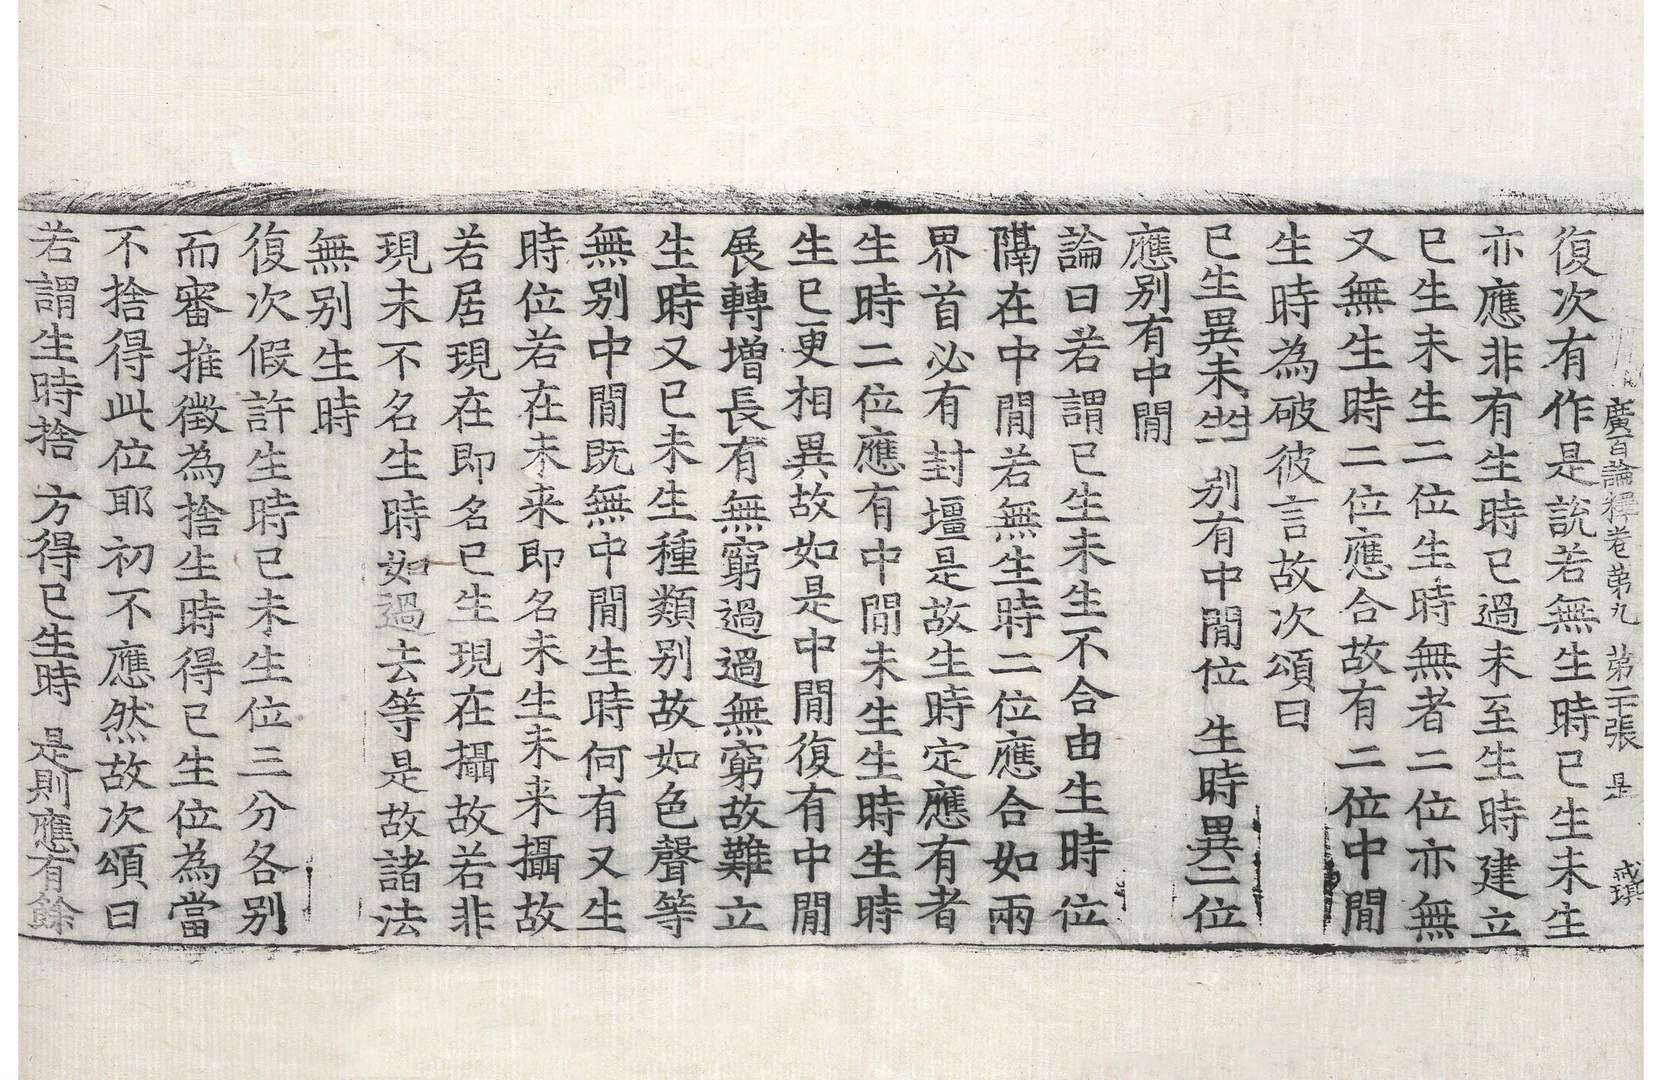 廣百論釋卷第九　第二十張　是
復次有作是說若無生時已生未生
亦應非有生時已過未至生時建立
已生未生二位生時無者二位亦無
又無生時二位應合故有二位中閒
生時為破彼言故次頌曰
已生異未生　別有中閒位　生時異二位
應別有中閒
論曰若謂已生未生不合由生時位
隔在中閒若無生時二位應合如兩
界首必有封壃是故生時定應有者
生時二位應有中閒未生生時生時
生已更相異故如是中閒復有中閒
展轉增長有無窮過過無窮故難立
生時又已未生種類別故如色聲等
無別中閒既無中閒生時何有又生
時位若在未来即名未生未来攝故
若居現在即名已生現在攝故若非
現未不名生時如過去等是故諸法
無別生時
復次假許生時已未生位三分各別
而審推徵為捨生時得已生位為當
不捨得此位耶初不應然故次頌曰
若謂生時捨　方得已生時　是則應有餘